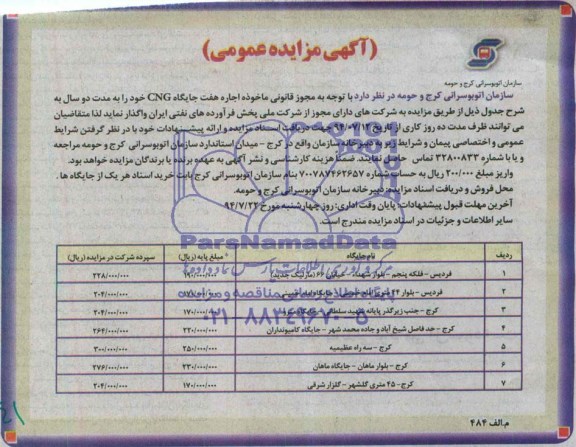 (آگهی مزایده عمومی)
سازمان اتوبوسرانی کرج و حومه
سازمان اتوبوسرانی کرج و حومه در نظر دارد با توجه به مجوز قانونی ماخوذه اجاره هفت جایگاه CNG خود را به مدت دو سال به
شرح جدول ذیل از طریق مزایده به شرکت های دارای مجوز از شرکت ملی پخش فرآورده های نفتی ایران واگذار نماید لذا متقاضیان
می توانند ظرف مدت ده روز کاری از تاریخ ۹۴/۰۷/۱۲ جهت دریافت اسناد مزایده و ارائه پیشنهادات خود با در نظر گرفتن شرایط
عمومی و اختصاصی پیمان و شرایط زیر به دبیرخانه سازمان واقع در کرج - میدان استاندارد سازمان اتوبوسرانی کرج و حومه مراجعه
و یا با شماره ۳۲۸۰۰۸۳۳ تماس حاصل نمایند. ضمناً هزینه کارشناسی و نشر آگهی به عهده برنده یا برندگان مزایده خواهد بود.
واریز مبلغ ۲۰۰/۰۰۰ ریال به حساب شماره ۷۰۰۷۸۷۴۶۲۶۵۷ بنام سازمان اتوبوسرانی کرج بابت خرید اسناد هر یک از جایگاه ها.
محل فروش و دریافت اسناد مزایده: دبیرخانه سازمان اتوبوسرانی کرج و حومه.
آخرین مهلت قبول پیشنهادات: پایان وقت اداری: روز چهارشنبه مورخ ۹۴/۷/۲۲
سایر اطلاعات و جزئیات در اسناد مزایده مندرج است.
ParsNamadData
ردیف نام جایگاه مبلغ پایه (ریال) سپرده شرکت در مزایده (ریال)
۱ فردیس - فلکه پنجم - بلوار شهداء - خیابان ۶۶ (مارلیک جدید) ۱۹۰/۰۰۰/۰۰۰ ۲۲۸/۰۰۰/۰۰۰
۲ فردیس - بلوار ۱۷۰/۰۰۰/۰۰۰ ۲۰۴/۰۰۰/۰۰۰
۳ کرج - جنب زیرگذر پایانه شهید سلطانی ۱۷۰/۰۰۰/۰۰۰ ۲۰۴/۰۰۰/۰۰۰
۴ کرج - حد فاصل شیخ آباد و جاده محمد شهر - جایگاه کامیونداران ۲۲۰/۰۰۰/۰۰۰ ۲۶۴/۰۰۰/۰۰۰
۵ کرج - سه راه عظیمیه ۲۵۰/۰۰۰/۰۰۰ ۳۰۰/۰۰۰/۰۰۰
۶ کرج - بلوار ماهان - جایگاه ماهان ۲۳۰/۰۰۰/۰۰۰ ۲۷۶/۰۰۰/۰۰۰
۷ کرج - ۴۵ متری گلشهر - گلزار شرقی ۱۷۰/۰۰۰/۰۰۰ ۲۰۴/۰۰۰/۰۰۰
پایگاه اطلاع رسانی مناقصه و مزایده
۰۲۱-۸۸۳۴۹۶۷۰-۵
م.الف ۴۸۴